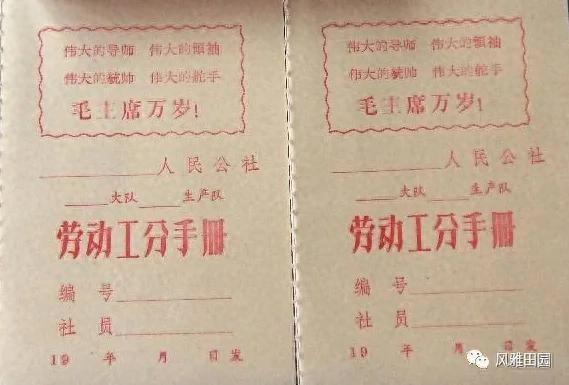 伟大的导师 伟大的領袖
伟大的統帅 伟大的舵手
毛主席万岁!
人民公社
大队 生产队
劳动工分手册
编号
社员
19 年 月 日发
伟大的导师 伟大的領袖
伟大的統帅 伟大的舵手
毛主席万岁!
人民公社
大队 生产队
劳动工分手册
编号
社员
19 年 月 日发
风雅田园